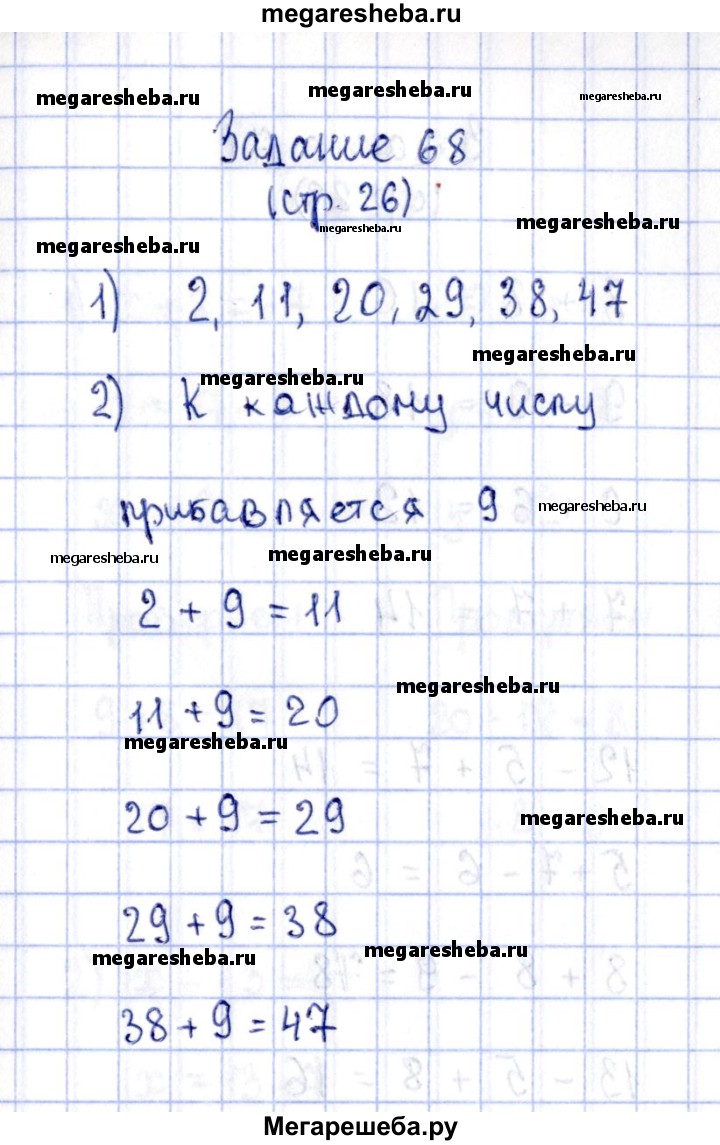 megaresheba.ru
megaresheba.ru megaresheba.ru megaresheba.ru
Задание 68
(стр. 26)
megaresheba.ru megaresheba.ru megaresheba.ru
1) 2, 11, 20, 29, 38, 47
megaresheba.ru
megaresheba.ru
2) К каждому числу
прибавляется 9 megaresheba.ru
megaresheba.ru megaresheba.ru
2 + 9 = 11
megaresheba.ru
11 + 9 = 20
megaresheba.ru
20 + 9 = 29 megaresheba.ru
29 + 9 = 38
megaresheba.ru megaresheba.ru
38 + 9 = 47
Мегарешеба.ру